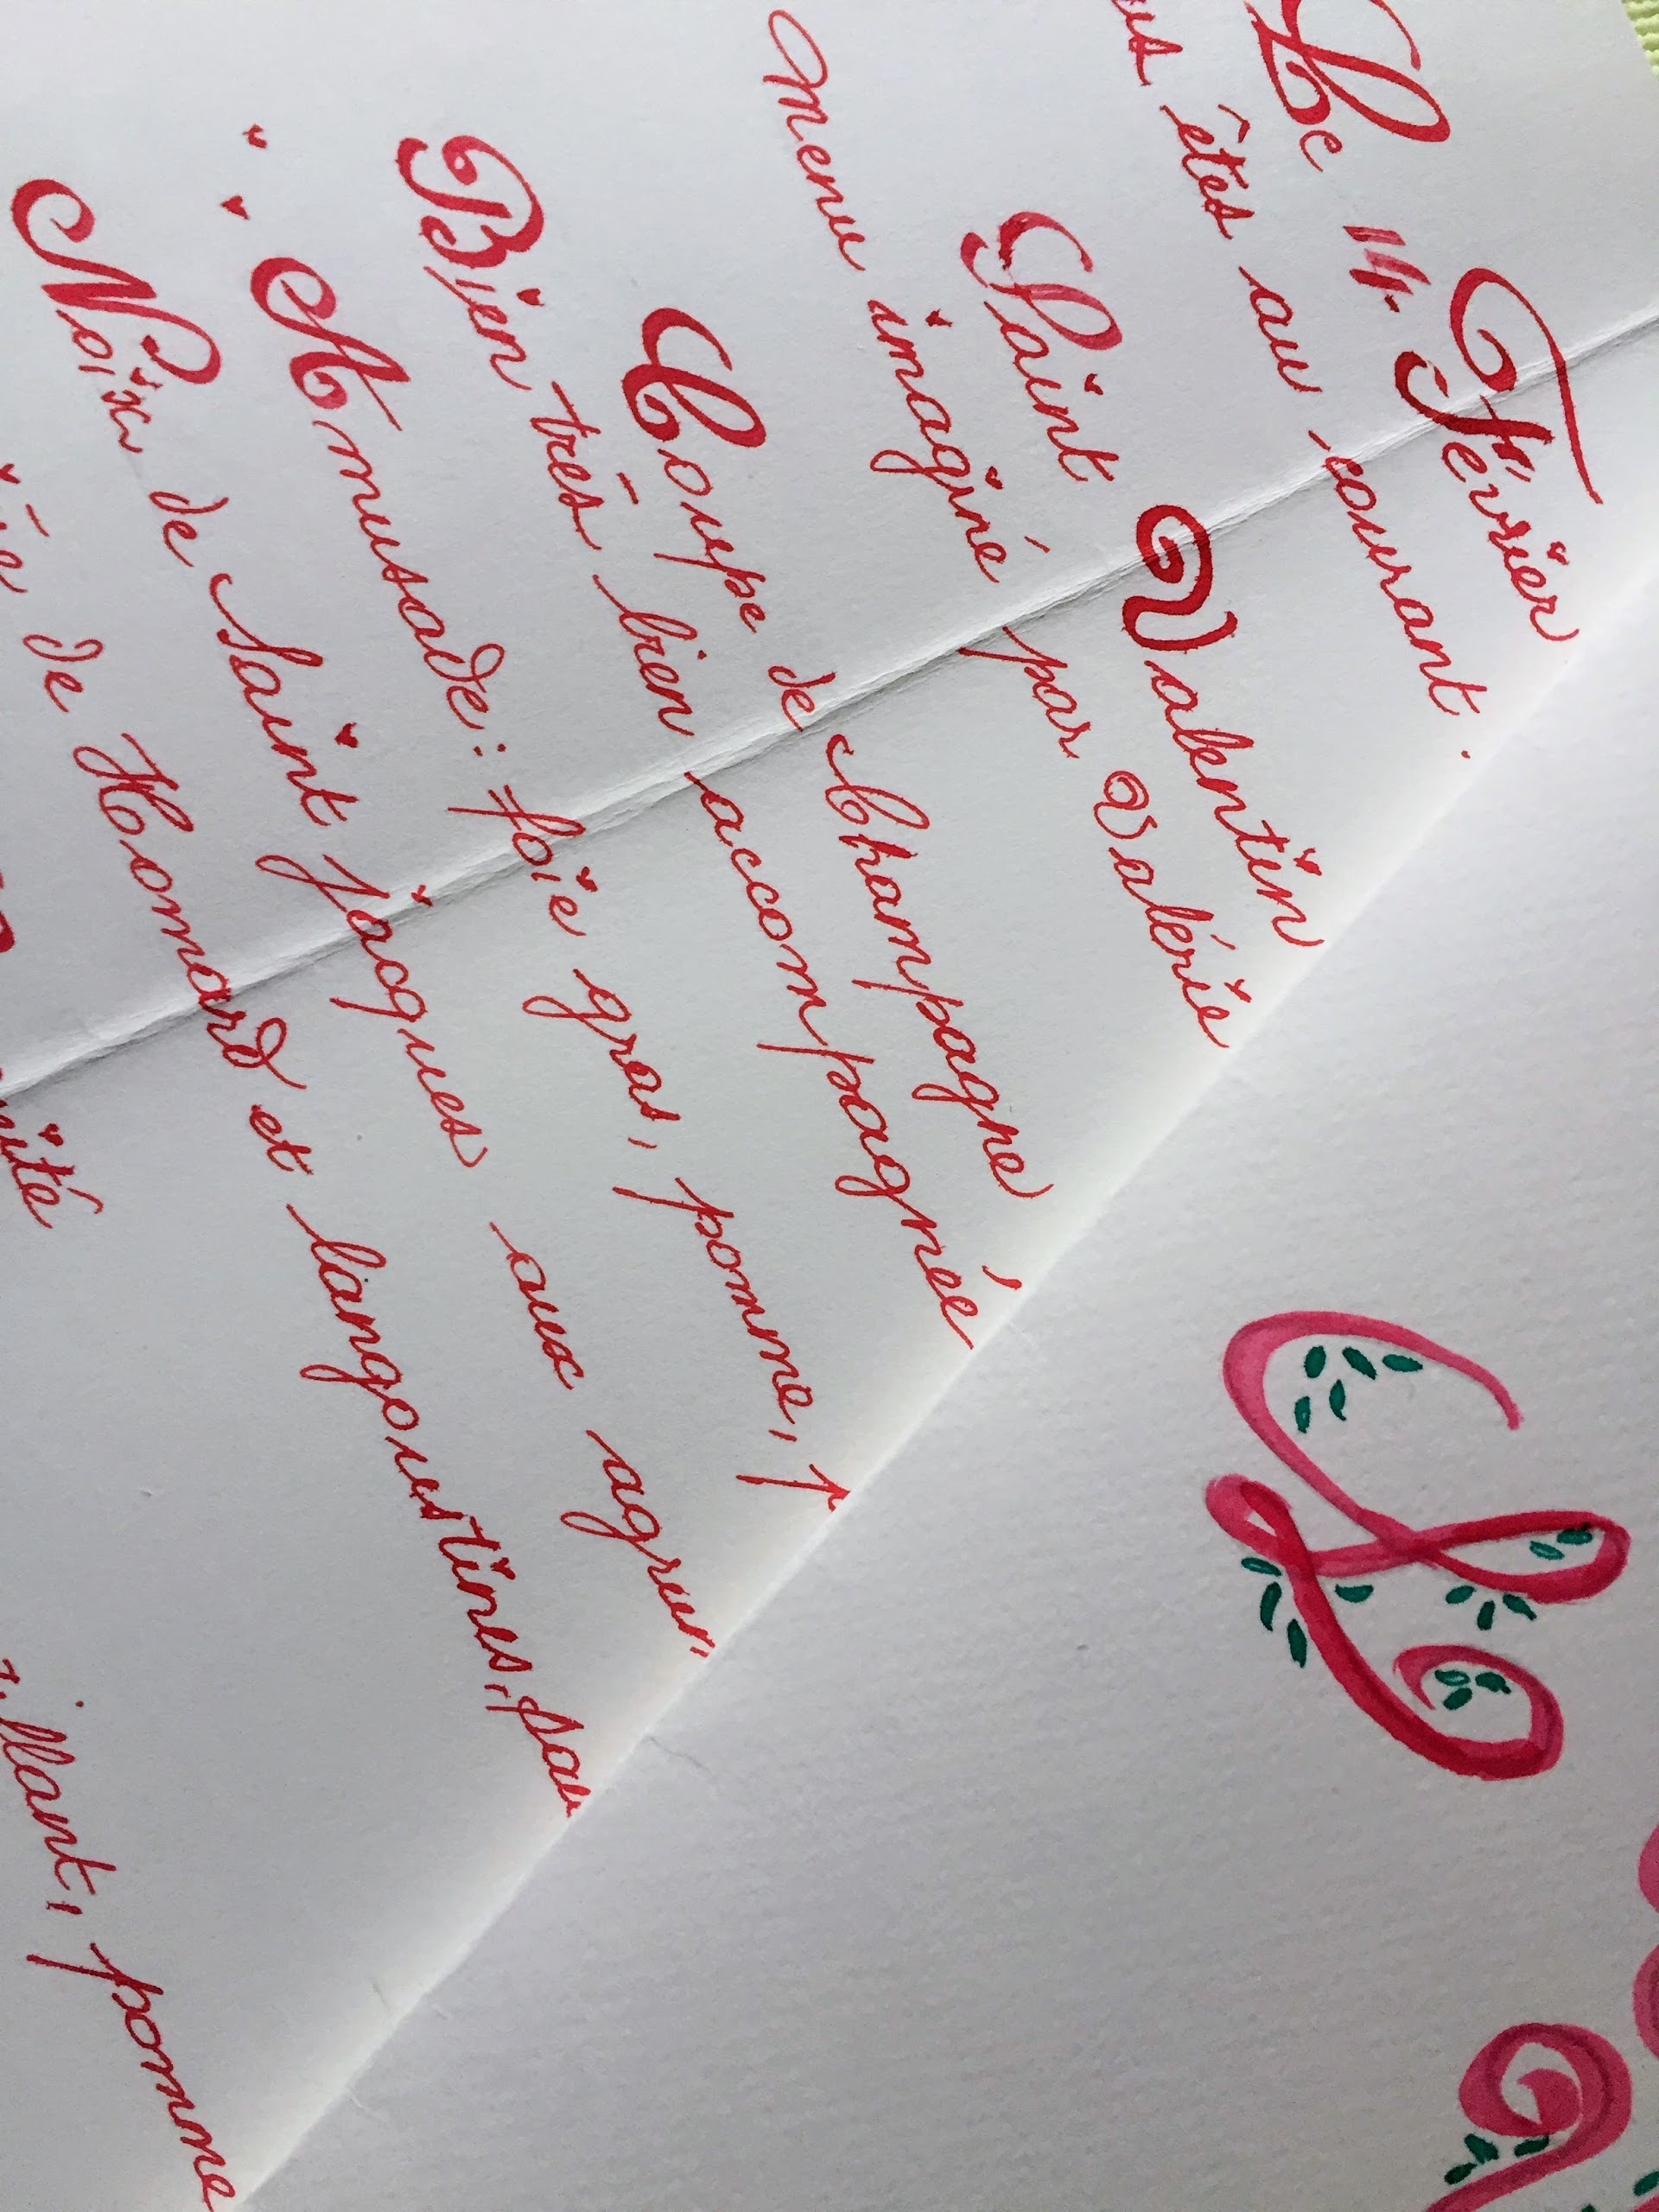 Le 14 Février
êtes au courant.
Saint Valentin
menu imaginé par Valérie
Coupe de Champagne
Bien très bien accompagnée
Amusade: foie gras, pomme,
Noix de Saint jacques aux
de Homard et langoustines,
pomme
S